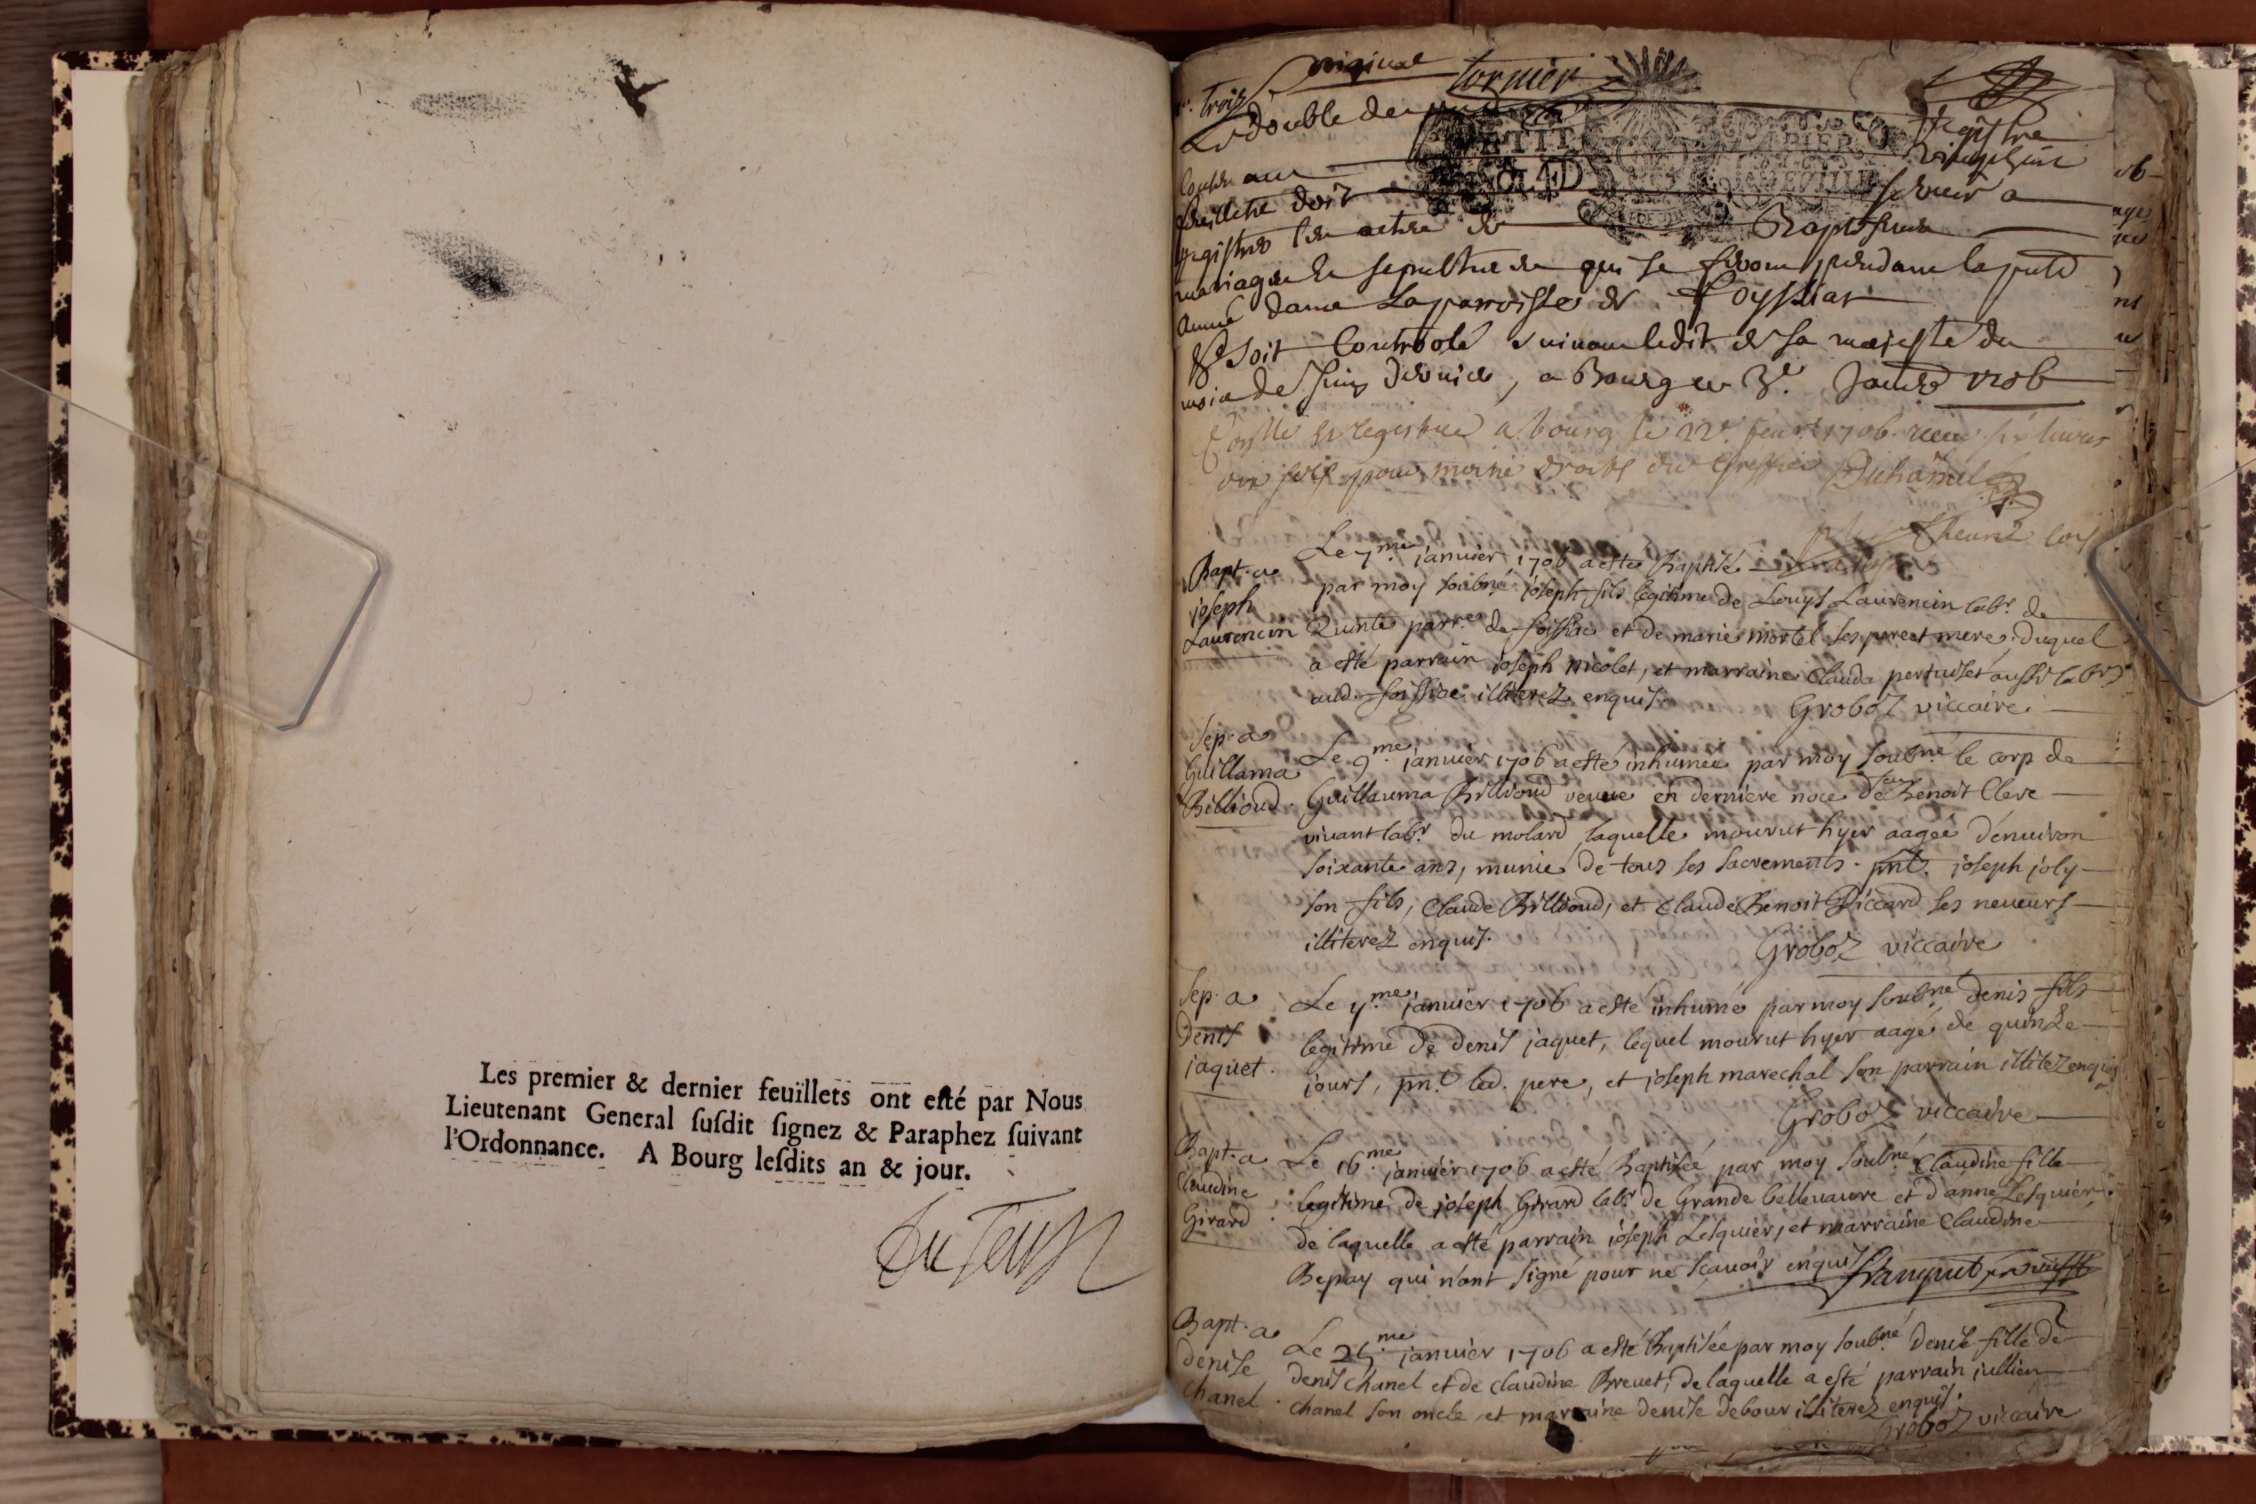 Les premier & dernier feuillets ont esté par Nous
Lieutenant General susdit signez & Paraphez suivant
l'Ordonnance. A Bourg lesdits an & jour.
original
Le double du
registre
feuillets doit servir a
registrer les actes de Baptesmes
mariages et sepultures qui se feront pendant la
année dans la parroisse de foyssiat
soit controlé suivant ledit de sa majesté du
mois de juin dernier, a Bourg ce 3e. Janvier 1706
a bourg le 22e. feur. 1706
pour moitié droits du Greffier Duhamel
Bapt. a
joseph
Laurencin
Le 7me. janvier 1706 a esté Baptisé
par moy soubné. joseph fils legitime de Louys Laurencin labr. de
et de marie mortel ses pere et mere, duquel
a esté parrain joseph nicolet, et marraine Clauda pertuiset aussi
aud. foissiac illiterez enquis.
Groboz viccaire
Sep. a
Guillama
Billioud.
Le 9me. janvier 1706 a esté inhumée par moy soubné le corp de
Guillauma Billioud veuue en derniere noce de feu Benoit Clere
vivant labr. du molard laquelle mourut hyer aagée d'enuiron
soixante ans, munie de tous ses sacrements. pnt. joseph joly
son fils, Claude Billioud, et Claude Benoit Piccard ses neueurs
illiterez enquis.
Groboz viccaire
Sep. a
Denis
jaquet.
Le janvier 1706 a esté inhumé par moy soubné Denis fils
legitime de Denis jaquet, lequel mourut hyer aagé de quinze
jours, pnt. led. pere, et joseph marechal son parrain illitez enquis
Groboz viccaire
Bapt. a
Claudine
Girard
Le 16me. janvier 1706 a esté Baptisée par moy soubné. Claudine fille
legitime de joseph Girard labr de Grande belleuaure et d'anne Lesquier
de laquelle a esté parrain joseph Lesquier, et marraine Claudine
Bepay qui n'ont signé pour ne scauoir enquis
Bapt. a
Denise
Chanel.
Le me. janvier 1706 a esté Baptisée par moy soubné. Denise fille de
Denis Chanel et de Claudine Breuet, de laquelle a esté parrain jullien
Chanel son oncle, et marraine Denise Debour illiterez enquis.
Groboz vicaire